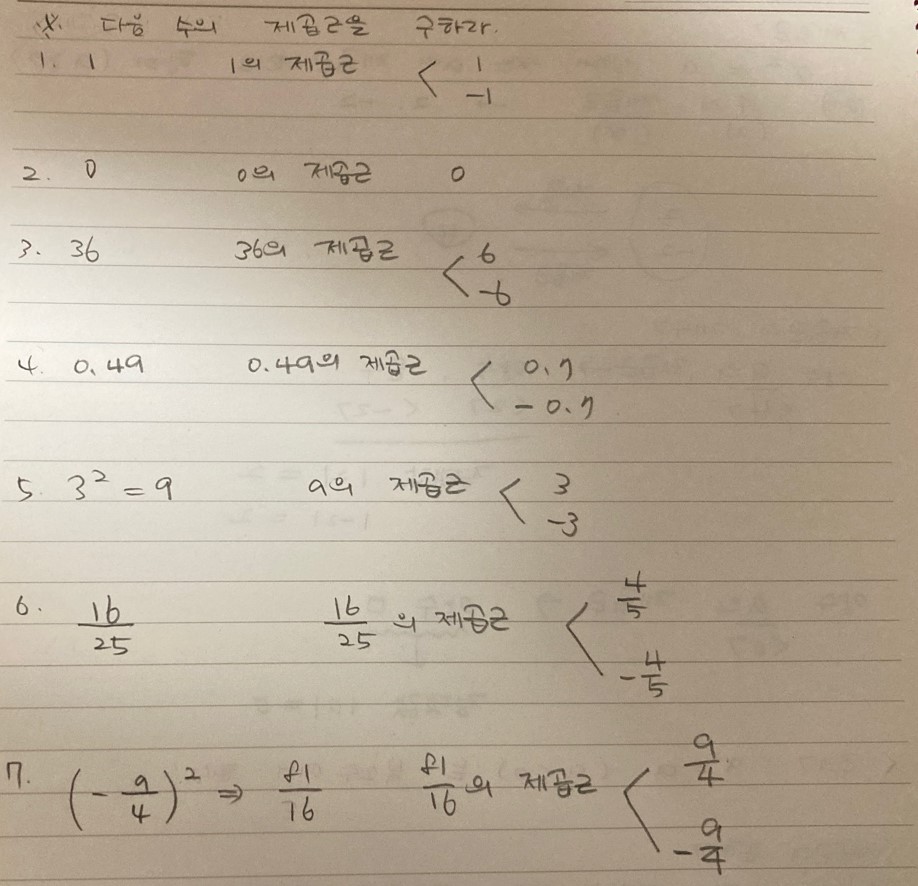 ※. 다음 수의 제곱근을 구하라.
1. 1 1의 제곱근 < 1
-1
2. 0 0의 제곱근 0
3. 36 36의 제곱근 < 6
-6
4. 0.49 0.49의 제곱근 < 0.7
-0.7
5. 3² = 9 9의 제곱근 < 3
-3
6. 16/25 16/25 의 제곱근 < 4/5
-4/5
7. (-9/4)² ⇒ 81/16 81/16 의 제곱근 < 9/4
-9/4